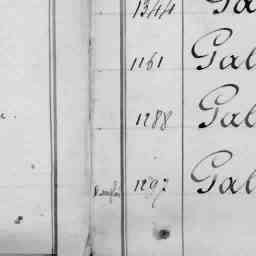 1344 Gal
1161 Gal
1288 Gal
1297 Gal